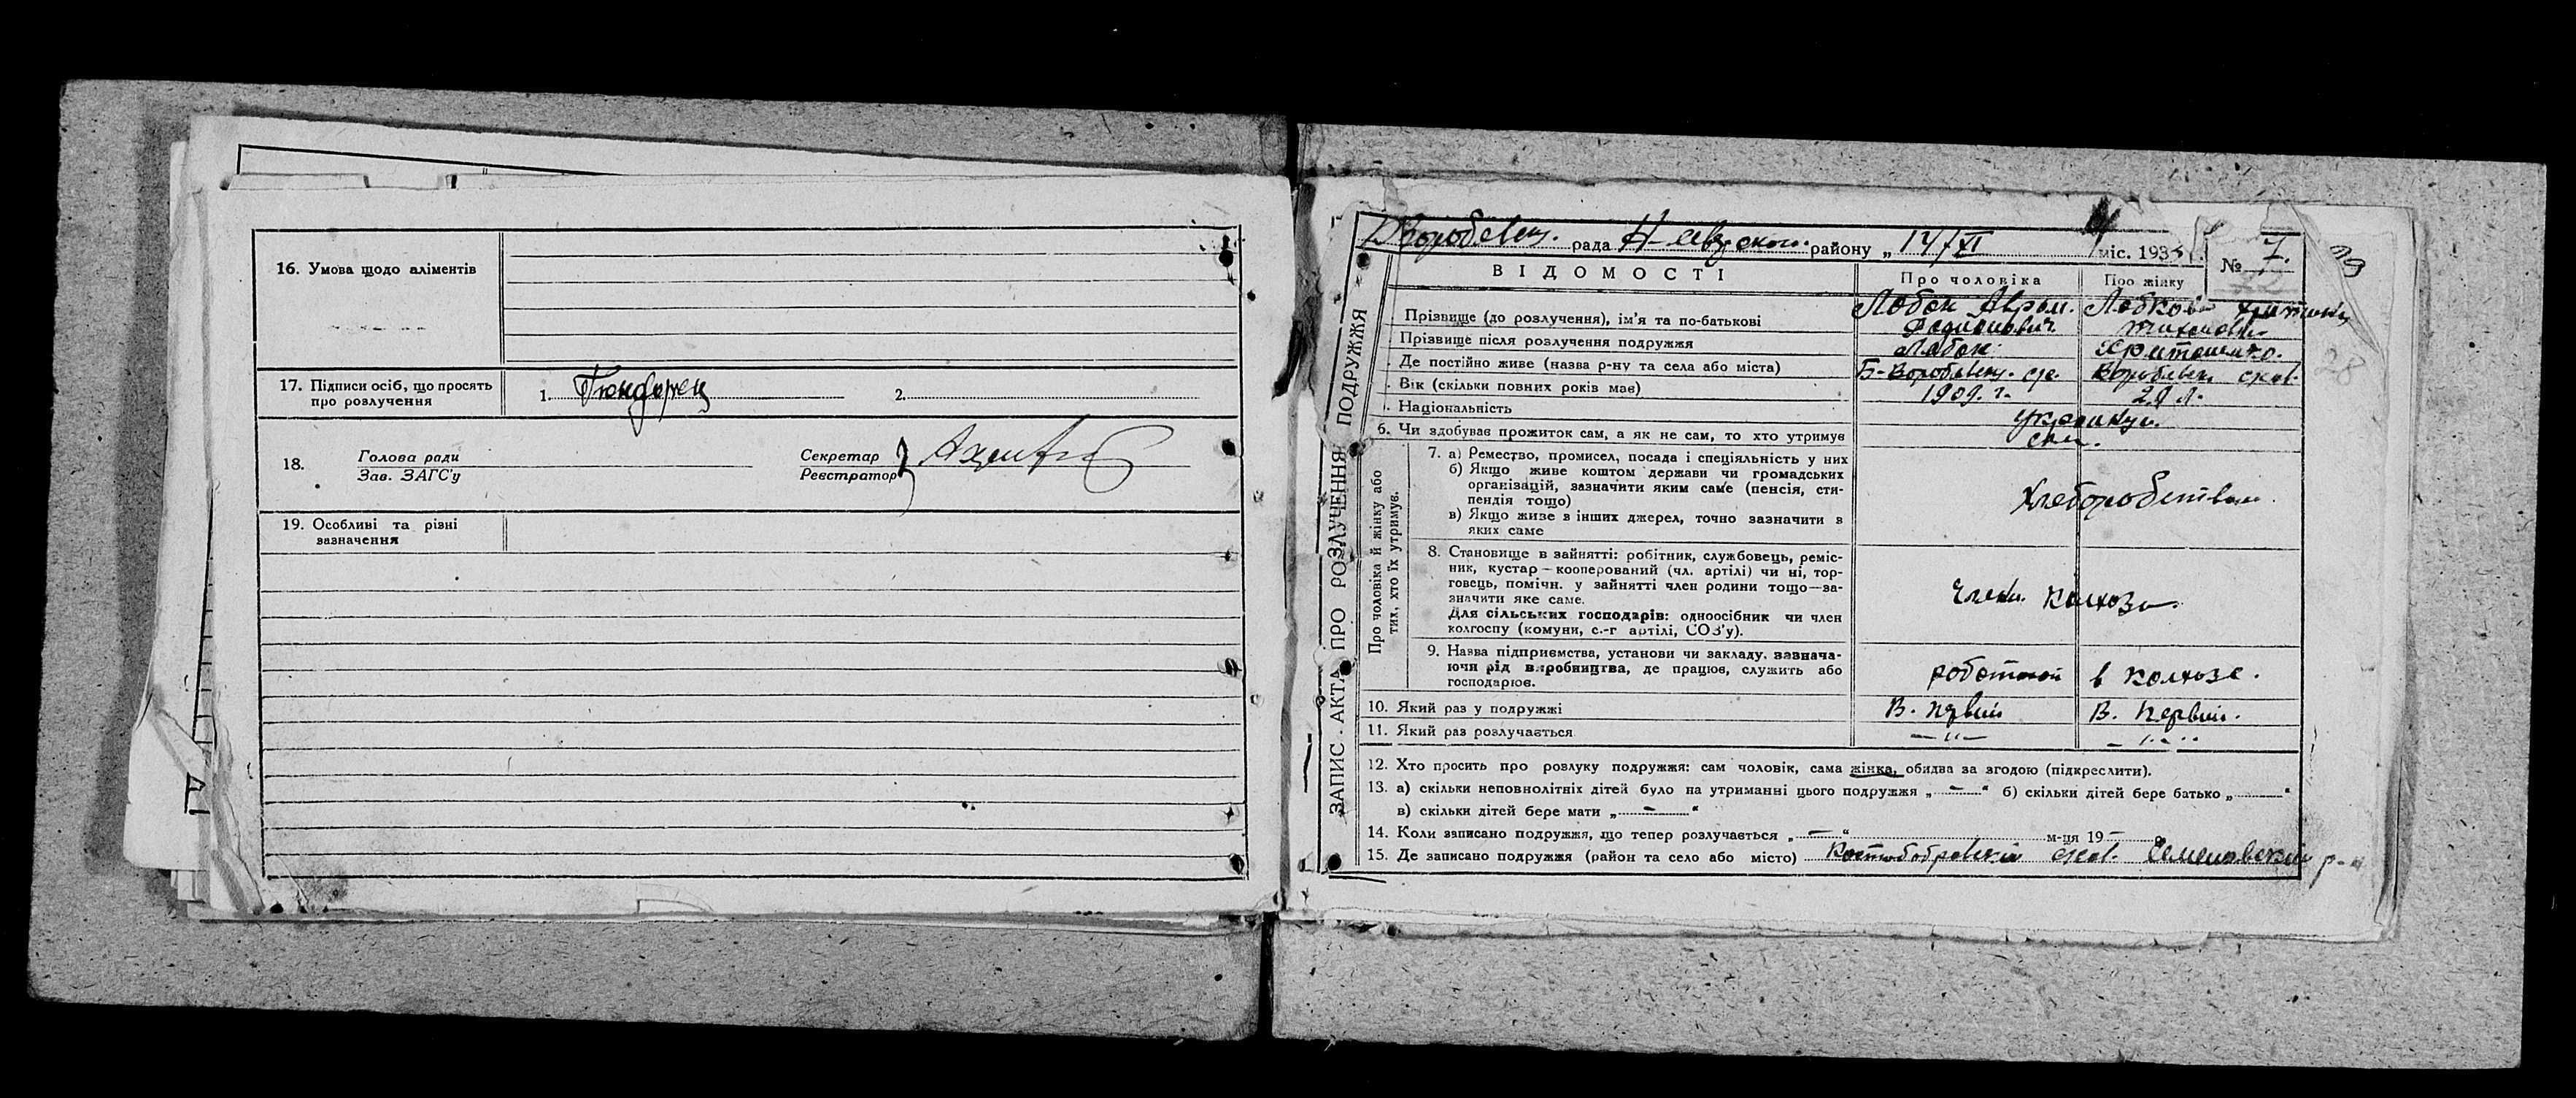 16. Умова щодо аліментів
17. Підписи осіб, що просять
про розлучення
1. Гюндорец 2.
18. Голова ради
Зав. ЗАГС'у
Секретар
Реєстратор
19. Особливі та різні
зазначення
ЗАПИС АКТА ПРО РОЗЛУЧЕННЯ ПОДРУЖЖЯ
рада Н-Севрского району „ 14/XI міс. 193
№ 7.
ВІДОМОСТІ
Про чоловіка
Про жінку
Прізвище (до розлучення), ім'я та по-батькові
Лобок Авром.
Родионович
Прізвище після розлучення подружжя
Лобок.
Харитоненко.
Де постійно живе (назва р-ну та села або міста)
Вік (скільки повних років має)
1909. г.
29 л.
Національність
6. Чи здобуває прожиток сам, а як не сам, то хто утримує
сам.
Про чоловіка й жінку або
тих, хто їх утримує.
7. а) Ремество, промисел, посада і спеціяльність у них
б) Якщо живе коштом держави чи громадських
організацій, зазначити яким саме (пенсія, сти-
пендія тощо)
в) Якщо живе з інших джерел, точно зазначити з
яких саме
Хлеборобством.
8. Становище в зайнятті: робітник, службовець, реміс-
ник, кустар — кооперований (чл. артілі) чи ні, тор-
говець, помічн. у зайнятті член родини тощо — за-
значити яке саме.
Для сільських господарів: одноосібник чи член
колгоспу (комуни, с.-г артілі, СОЗ'у).
члени колхоза.
9. Назва підприємства, установи чи закладу, зазнача-
ючи рід виробництва, де працює, служить або
господарює.
в колхозе.
10. Який раз у подружжі
В. первий
В. первий.
11. Який раз розлучається
— " —
— " —
12. Хто просить про розлуку подружжя: сам чоловік, сама жінка, обидва за згодою (підкреслити).
13. а) скільки неповнолітніх дітей було на утриманні цього подружжя „ — " б) скільки дітей бере батько „ "
в) скільки дітей бере мати „ — "
14. Коли записано подружжя, що тепер розлучається „ — " м-ця 19 —
15. Де записано подружжя (район та село або місто) Костобобровский сков. Семеновский р-н
28